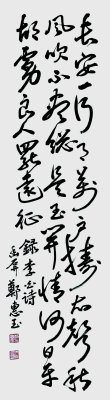 長安一片月萬戶擣衣聲秋
風吹不盡總是玉關情何日平
胡虜良人罷遠征 錄李白詩
鄭惠玉